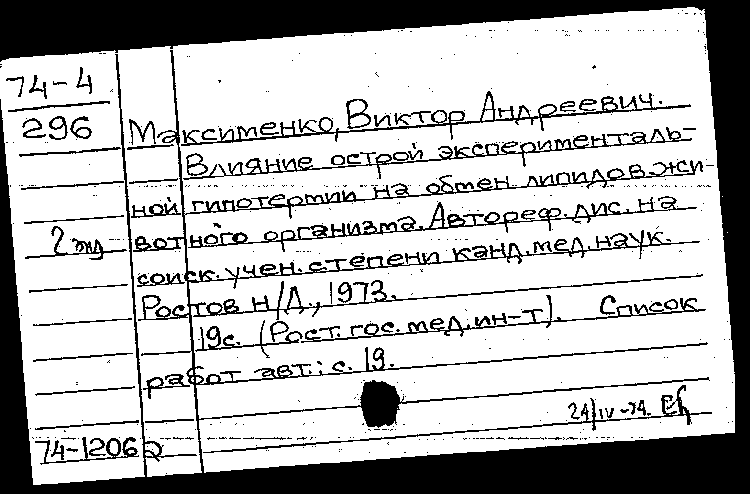 74-4
296
Максименко, Виктор Андреевич.
Влияние острой эксперименталь-
ной гипотермии на обмен липидов жи-
2 экз
вотного организма. Автореф. дис. на
соиск. учен. степени канд. мед. наук.
Ростов н/Д., 1973.
19с. (Рост. гос. мед. ин-т). Список
работ авт.: с. 19.
24/IV-74.
74-12062